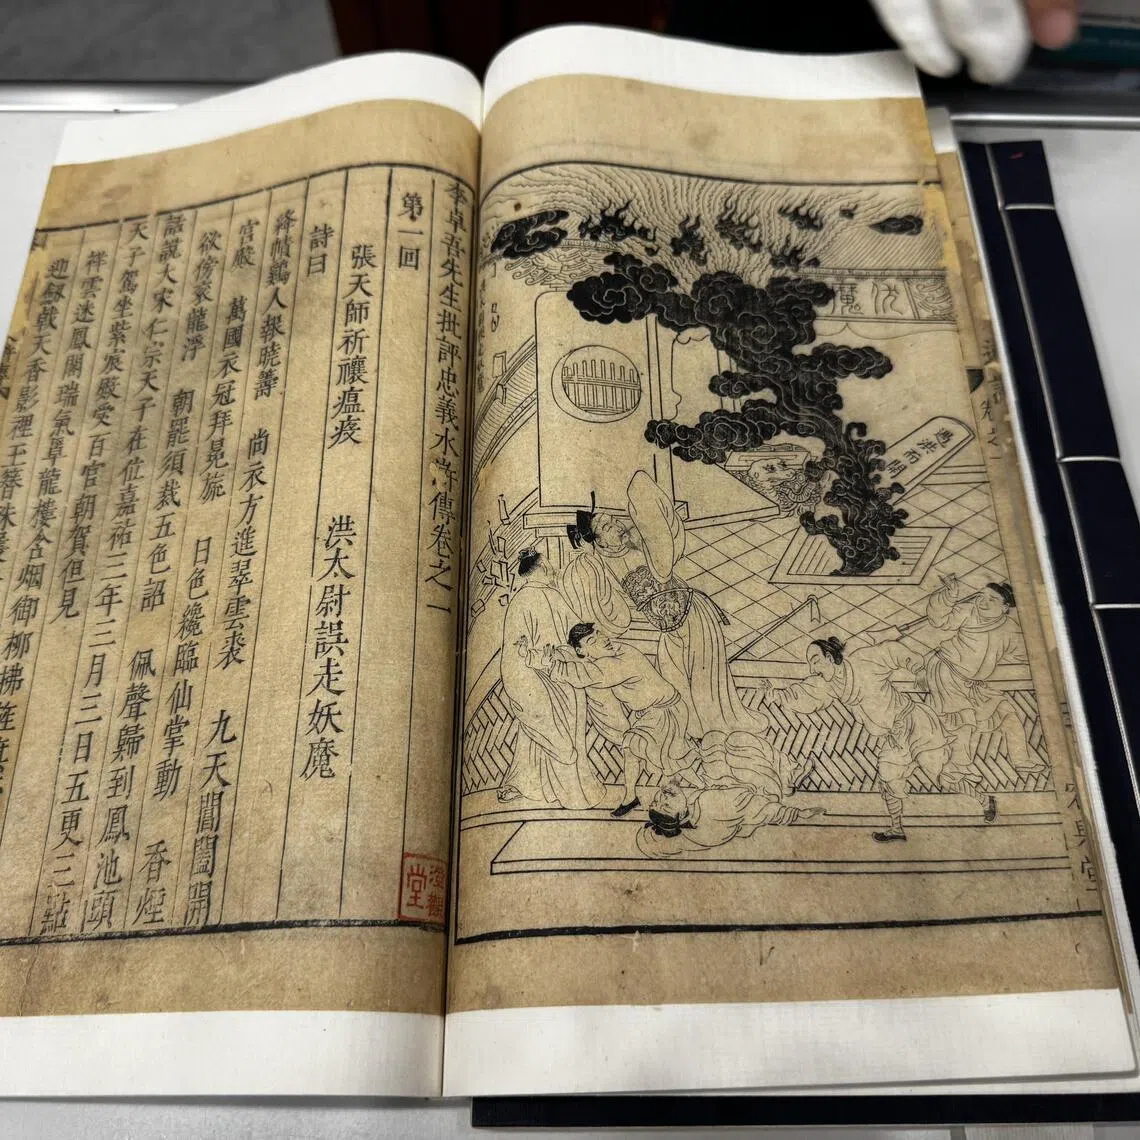 伏魔
遇洪而開
李卓吾先生批評忠義水滸傳卷之一
第一回
張天師祈禳瘟疫 洪太尉誤走妖魔
詩曰
絳幘鷄人報曉籌 尚衣方進翠雲裘 九天閶闔開
宮殿 萬國衣冠拜冕旒 日色纔臨仙掌動 香煙
欲傍衮龍浮 朝罷須裁五色詔 佩聲歸到鳳池頭
話說大宋仁宗天子在位嘉祐三年三月三日五更三點
天子駕坐紫宸殿受百官朝賀但見
祥雲迷鳳閣瑞氣罩龍樓含烟御柳拂旌
迎劔戟天香影裡玉簪珠
澄觀堂